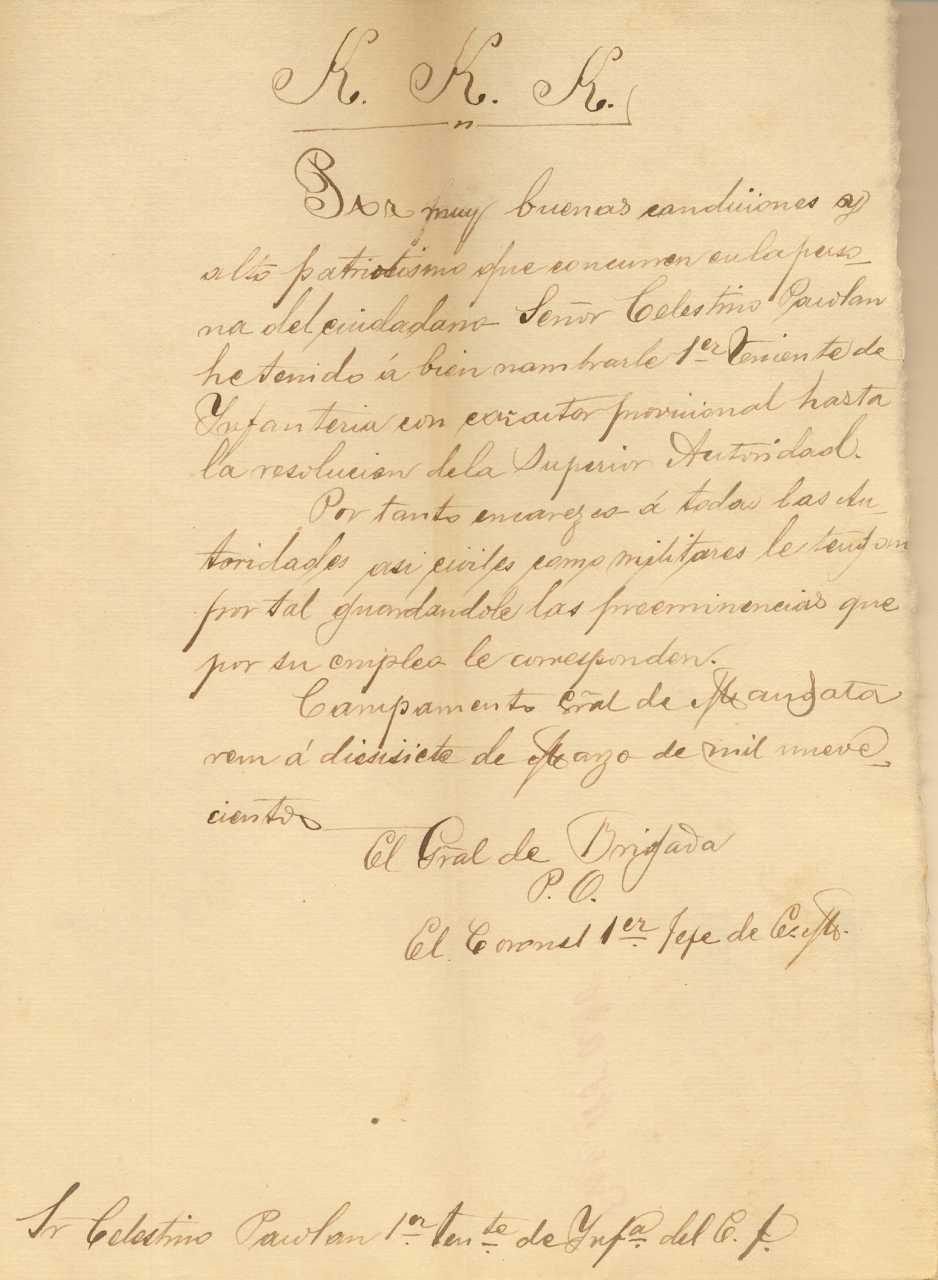 K. K. K.
Por muy buenas condiciones y
alto patriotismo que concurren en la perso-
na del ciudadano Señor Celestino Pacolan
he tenido á bien nombrarle 1er Teniente de
Infanteria con caracter provicional hasta
la resolucion dela Superior Autoridad.
Por tanto encarezco á todas las Au-
toridades asi civiles como militares le tengan
por tal guardandole las preeminencias que
por su empleo le corresponden.
Campamento Gral de
rem á diesisiete de Marzo de mil nueve-
cientos
El Gral de Brigada
P. O.
El Coronel 1er Jefe de E. M.
Sr Celestino Pacolan 1er Tente de Infa del E. F.